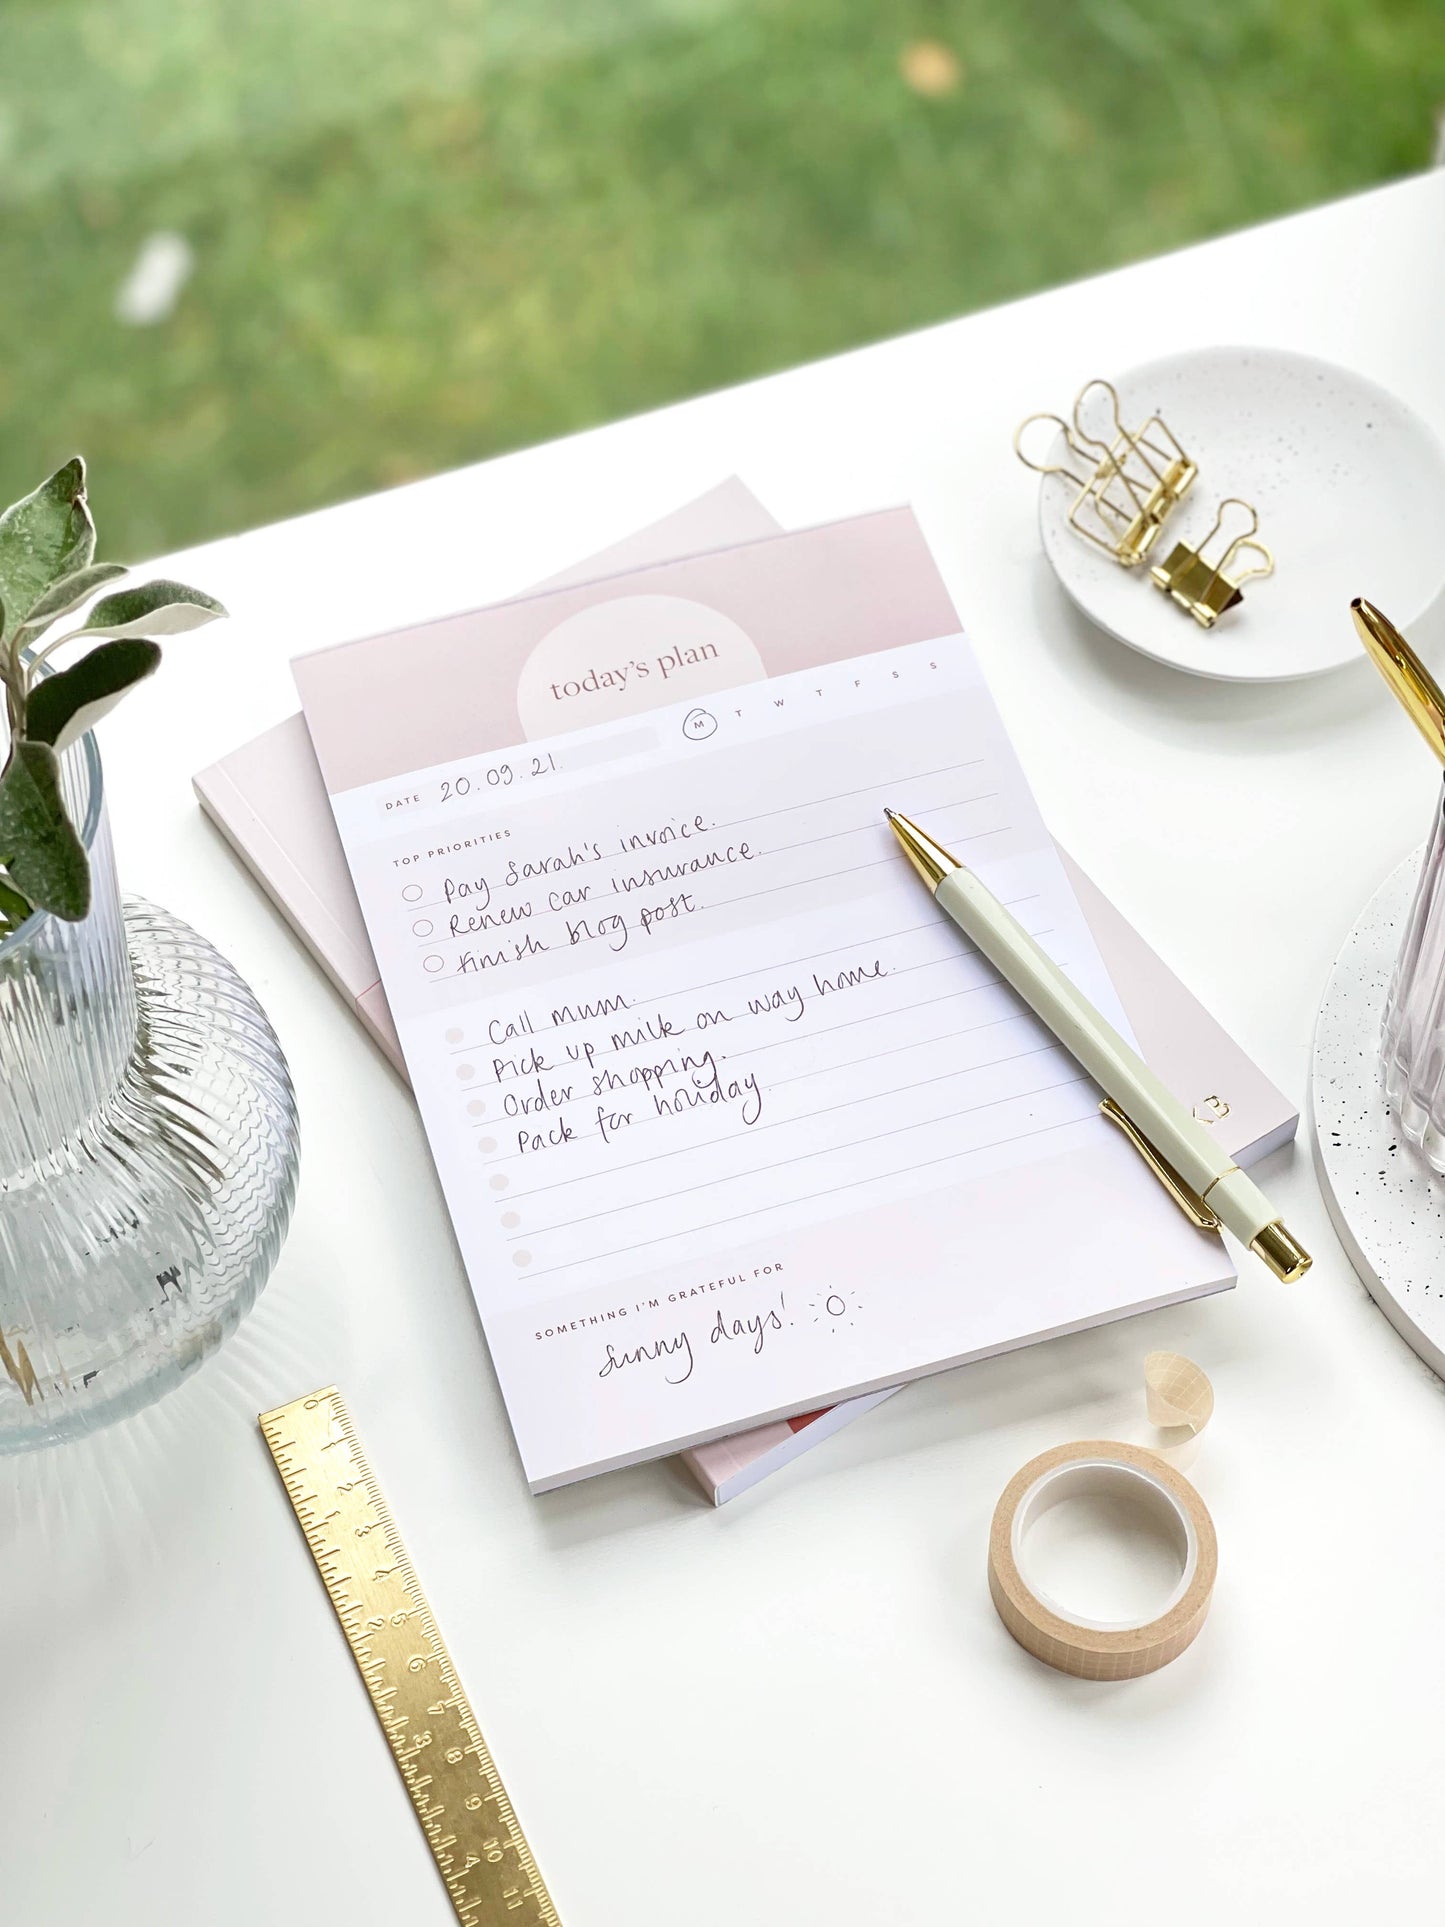 today's plan
M T W T F S S
DATE 20.09.21.
TOP PRIORITIES
Pay Sarah's invoice.
Renew car insurance.
Finish blog post.
Call mum.
Pick up milk on way home.
Order shopping.
Pack for holiday.
SOMETHING I'M GRATEFUL FOR
Sunny days!
B
0 1 2 3 4 5 6 7 8 9 10 11
1 2 3 4